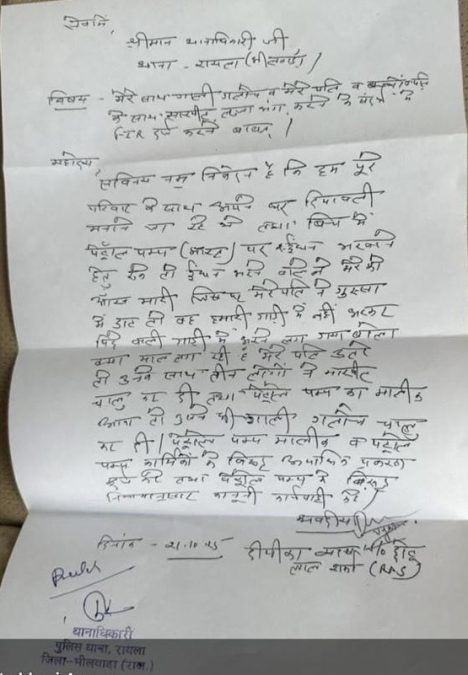 सेवामें,
श्रीमान थानाधिकारी जी
थाना - रायला (भीलवाड़ा)
विषय - मेरे साथ गाली गलौच व मेरे पति व
के साथ मारपीट लज्जा भंग करने के संबंध में
FIR दर्ज करने बाबत्।
महोदय,
सविनय नम्र निवेदन है कि हम पूरे
परिवार के साथ अपने घर दिपावली
मनाने जा रहे थे तथा बिच में
पेट्रोल पम्प पर ईंधन भरवाने
हेतु रुके तो ईंधन भरने वाले ने मेरे को
आँख मारी जिस पर मेरे पति ने गुस्सा
में डाट तो वह हमारी गाडी में नहीं भरकर
पिछे वाली गाडी में भरने लग गया बोला
क्या माल लग रही है मेरे पति उतरे
तो उनके साथ तीन लोगों ने मारपीट
चालु कर दी तथा पेट्रोल पम्प का मालीक
आया तो उसने भी गाली गलौच चालू
कर दी। पेट्रोल पम्प मालीक व पेट्रोल
पम्प कार्मिकों के विरुद्ध आपराधिक प्रकरण
दर्ज करे तथा पेट्रोल पम्प के विरुद्ध
नियमानुसार कानूनी कार्यवाही करे।
भवदीय
दिनांक - 21.10.25 दीपीका व्यास W/o छोटू
लाल शर्मा (RAS)
थानाधिकारी
पुलिस थाना, रायला
जिला-भीलवाडा (राज.)